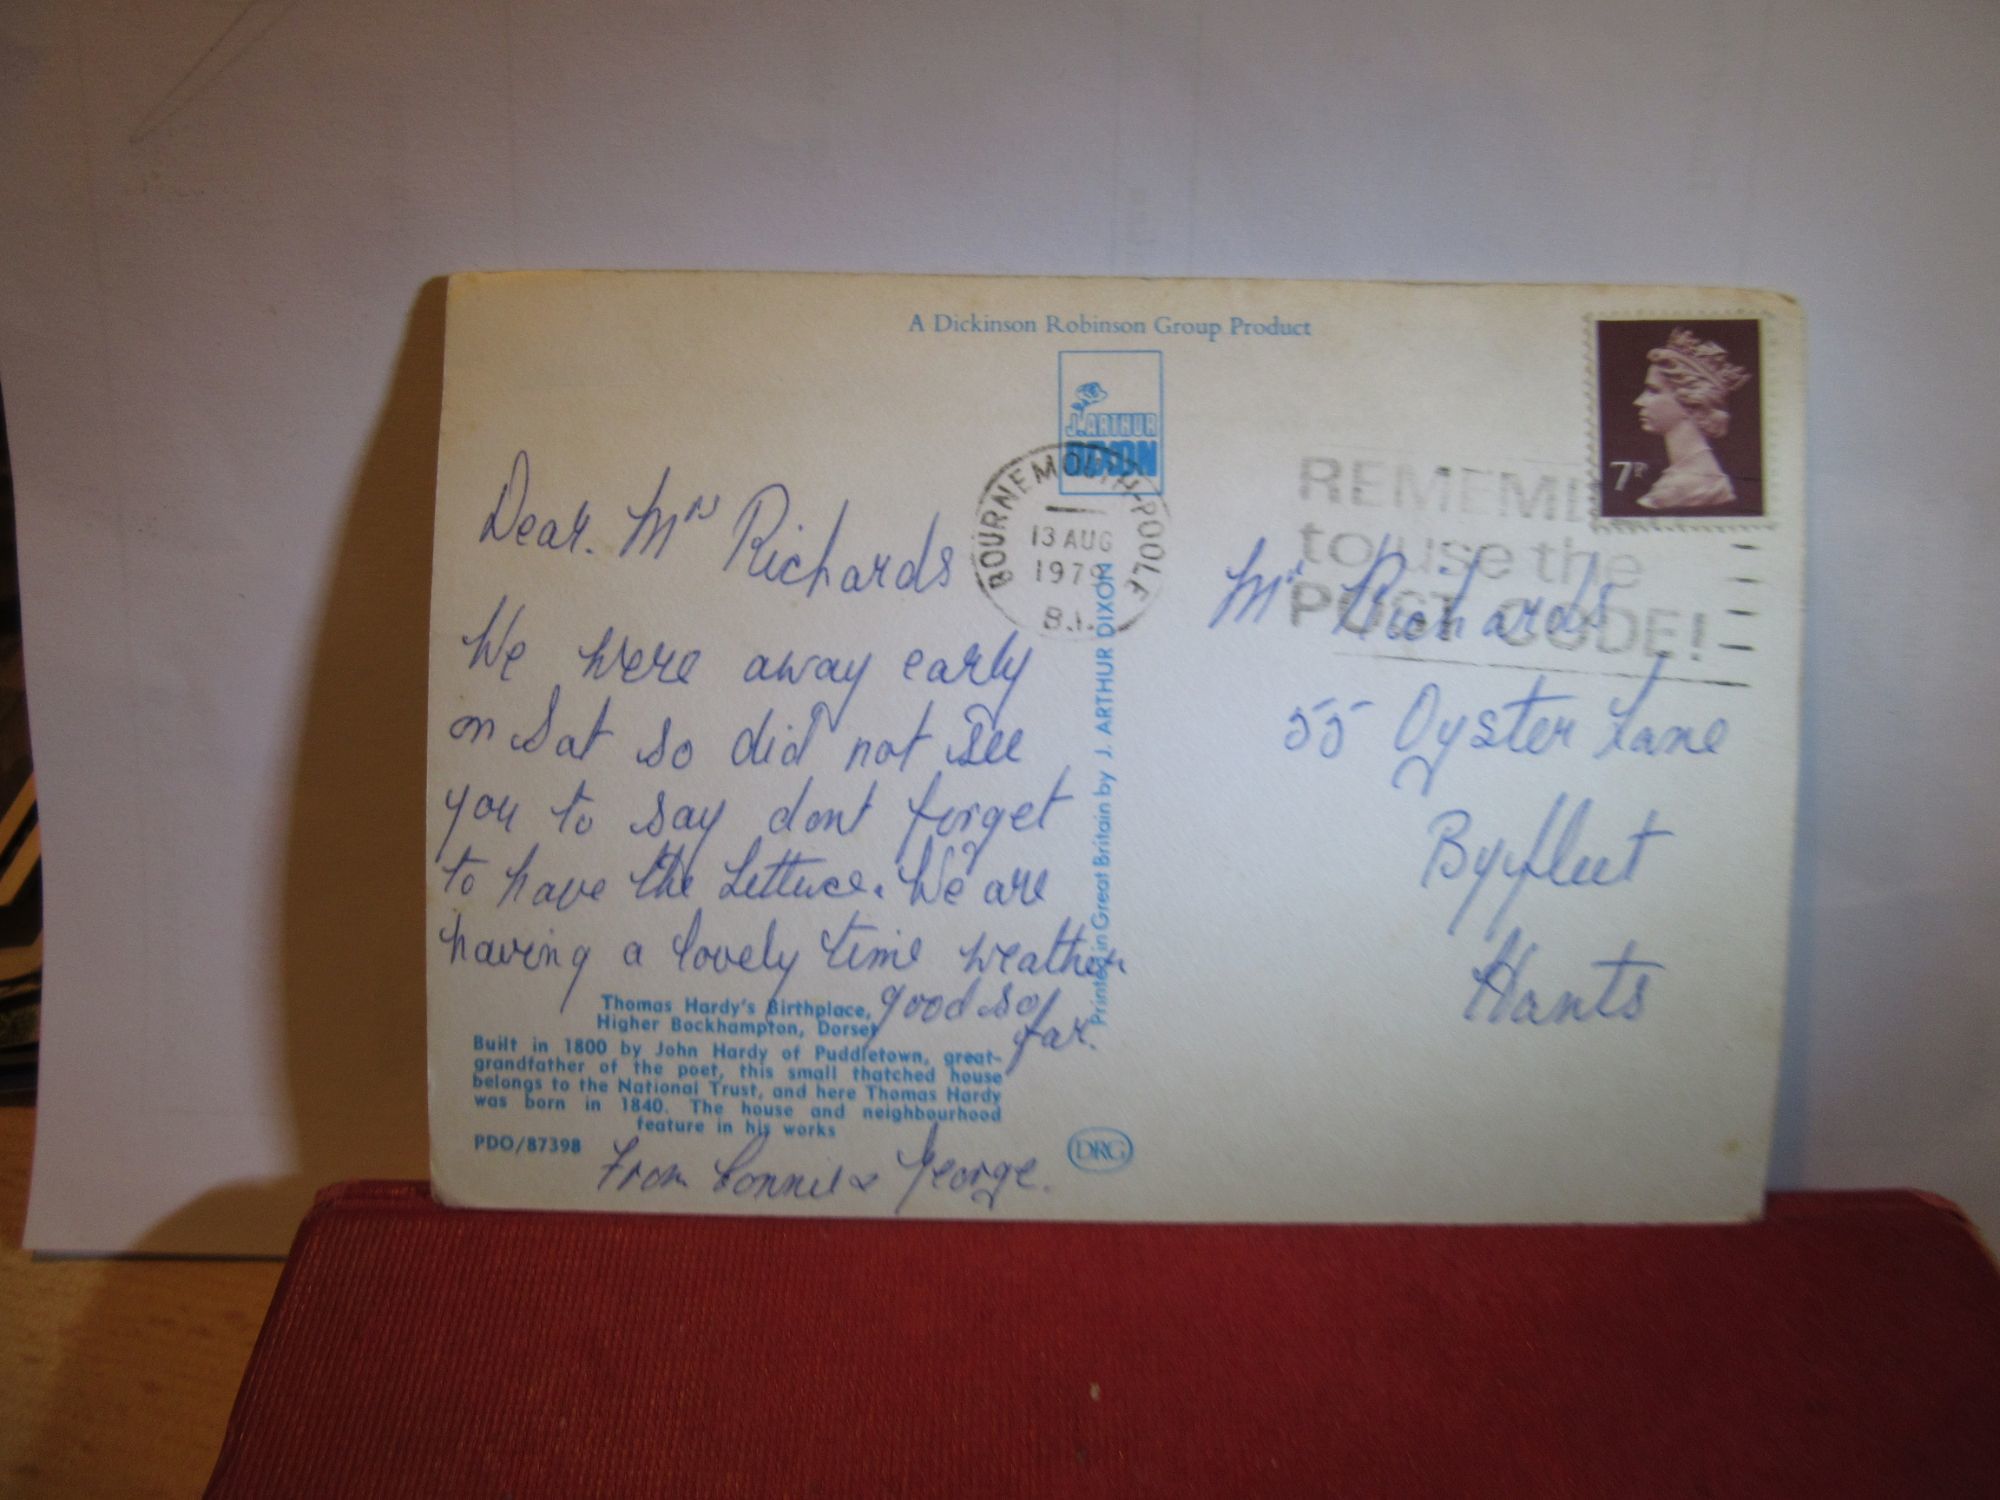 A Dickinson Robinson Group Product
J. ARTHUR
DIXON
7P
BOURNEMOUTH-POOLE
13 AUG
1979
B.I.
REMEM
to use the
POST CODE!
Dear. Mrs Richards
We were away early
on Sat so did not see
you to say dont forget
to have the Lettuce. We are
having a lovely time weather
good so
far.
From Connie & George.
Mrs Richards
55 Oyster Lane
Byfleet
Hants
Printed in Great Britain by J. ARTHUR DIXON
Thomas Hardy's Birthplace,
Higher Bockhampton, Dorset
Built in 1800 by John Hardy of Puddletown, great-
grandfather of the poet, this small thatched house
belongs to the National Trust, and here Thomas Hardy
was born in 1840. The house and neighbourhood
feature in his works
PDO/87398
DRG